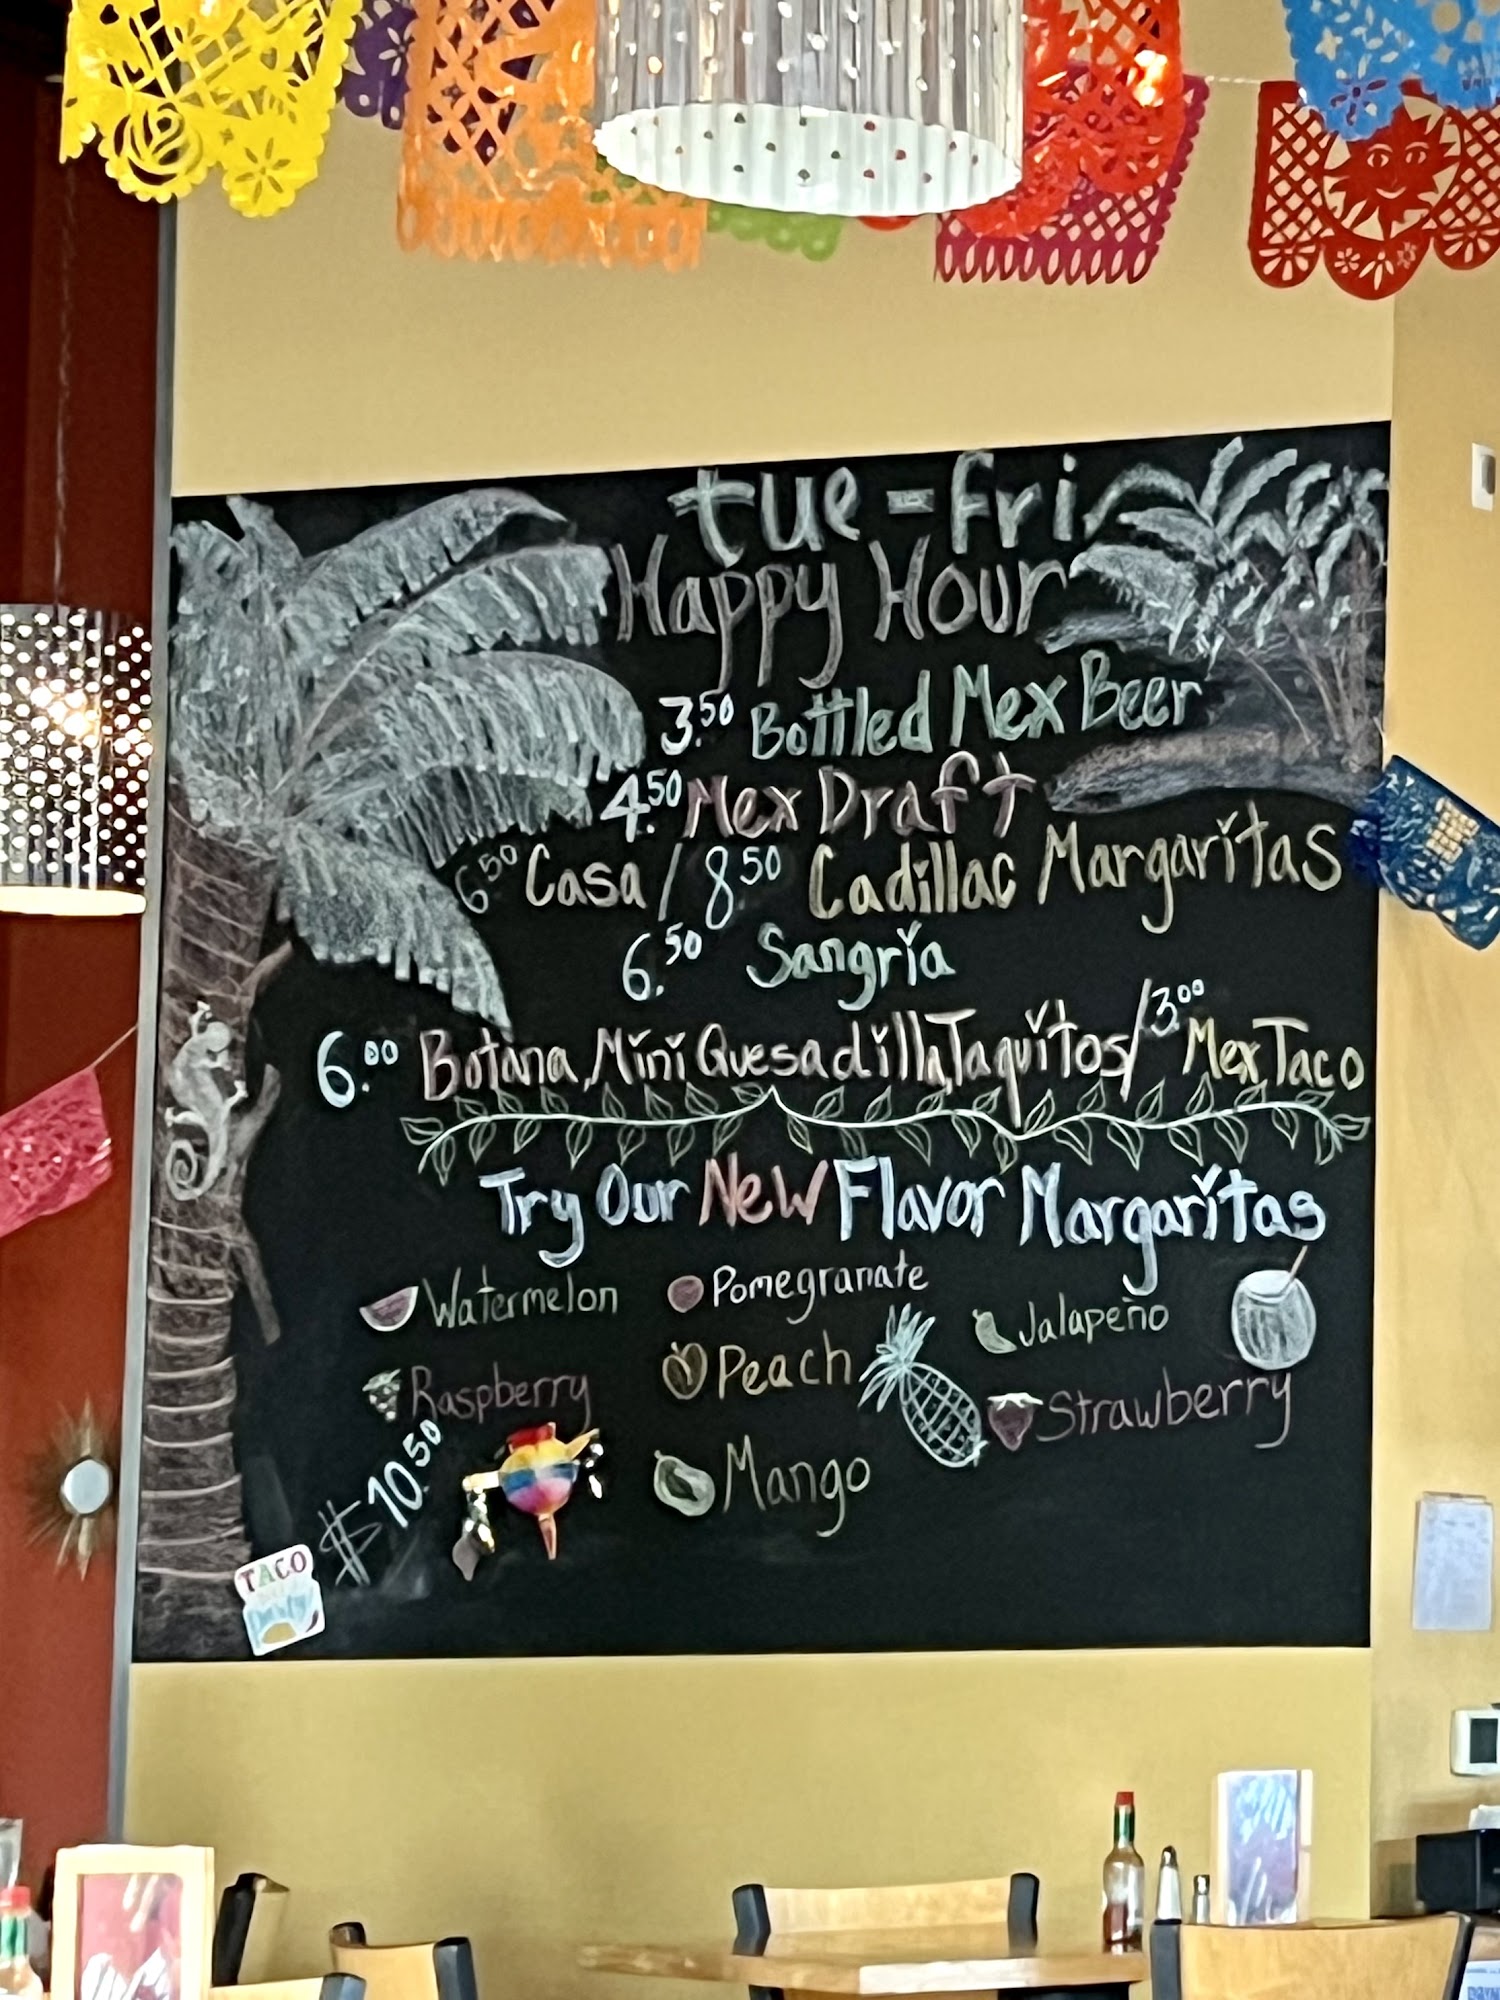 tue - fri
Happy Hour
3.50 Bottled Mex Beer
4.50 Mex Draft
6.50 Casa / 8.50 Cadillac Margaritas
6.50 Sangria
6.00 Botana, Mini Quesadilla, Taquitos / 3.00 Mex Taco
Try Our New Flavor Margaritas
Watermelon Pomegranate Jalapeño
Raspberry Peach Strawberry
Mango
$10.50
TACO
Party